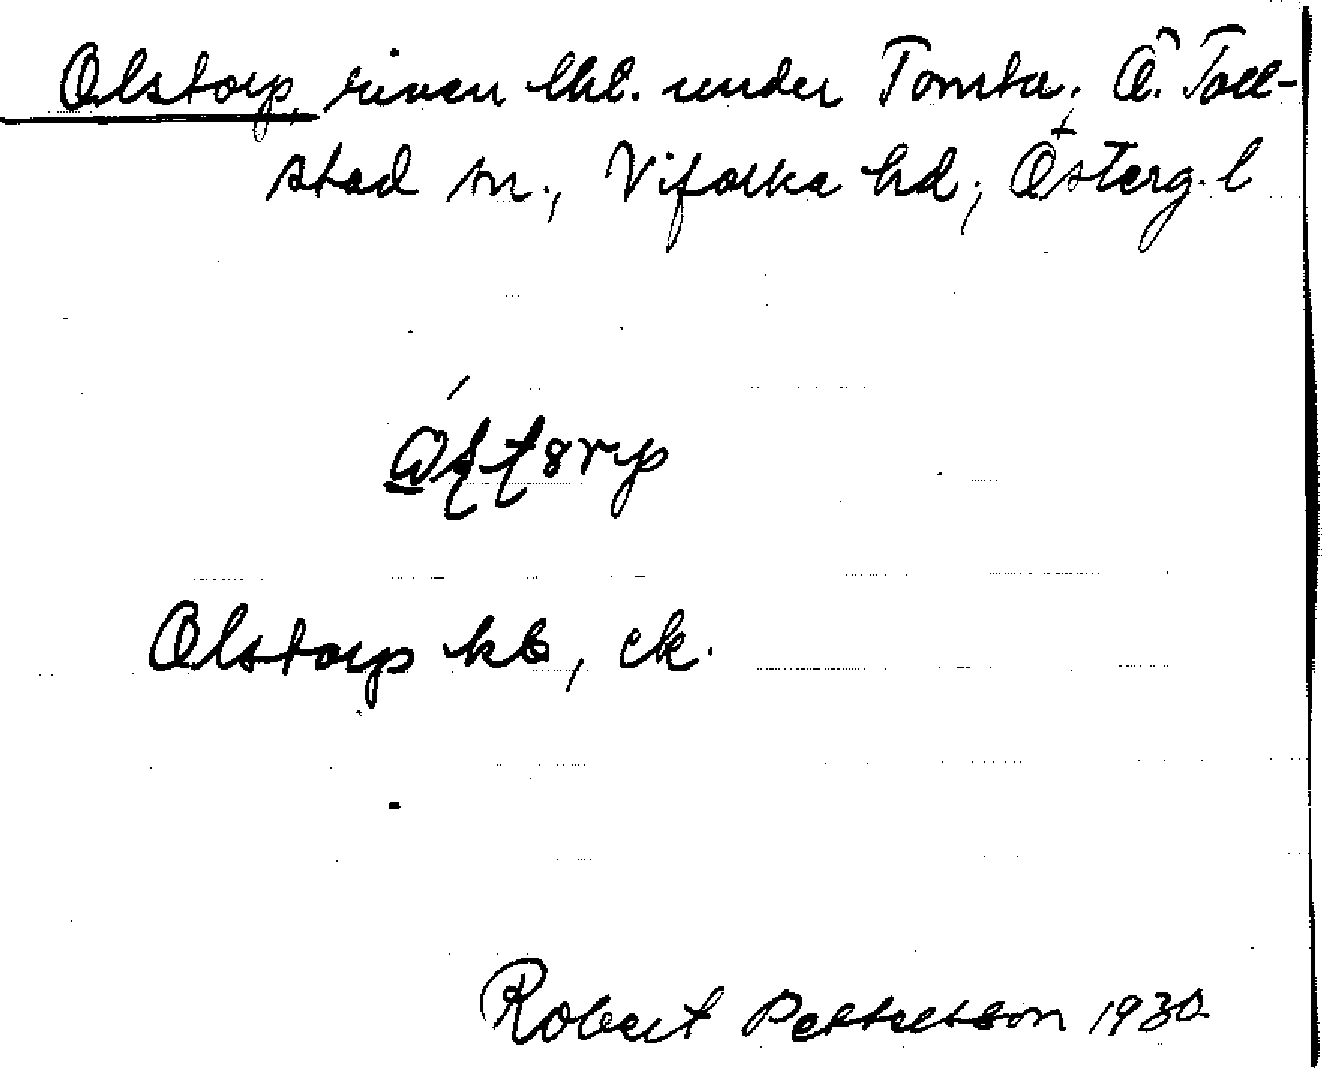 Olstorp, riven lhl. under Tomta, Ö. Toll-
stad sn., Vifolka hd, Österg. l
Olstorp kb, ek.
Robert Pettersson 1930